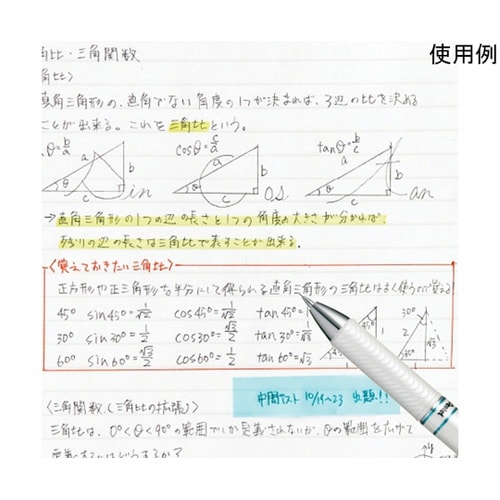 使用例
角比・三角関数
角比〉
直角三角形の、直角でない角度の1つが決まれば、3辺の比を決める
ことが出来る。これを三角比という。
θ=b/a cosθ=c/a tanθ=b/c
a b c θ in
a b c θ os
a b c θ an
→直角三角形の1つの辺の長さと1つの角度の大きさが分かれば、
残りの辺の長さは三角比で表すことが出来る。
〈覚えておきたい三角比〉
正方形や正三角形を半分にして得られる直角三角形の三角比はよく使うので覚える!
45° sin45°=1/√2 cos45°=1/√2 tan45°=1
30° sin30°=1/2 cos30°=√3/2 tan30°=1/√3
60° sin60°=√3/2 cos60°=1/2 tan60°=√3
45° 1
30° 2 √3 60°
中間テスト 10/19~23 出題!!
〈三角関数(三角比の拡張)〉
三角比は、0°<θ<90°の範囲でしか定義されないが、θの範囲を広げて
定義するにはどうするか?